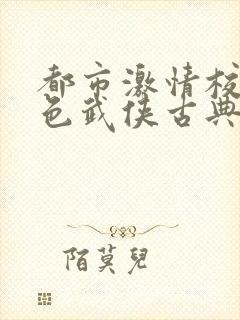 都市激情校
色武侠古典
陌莫兒